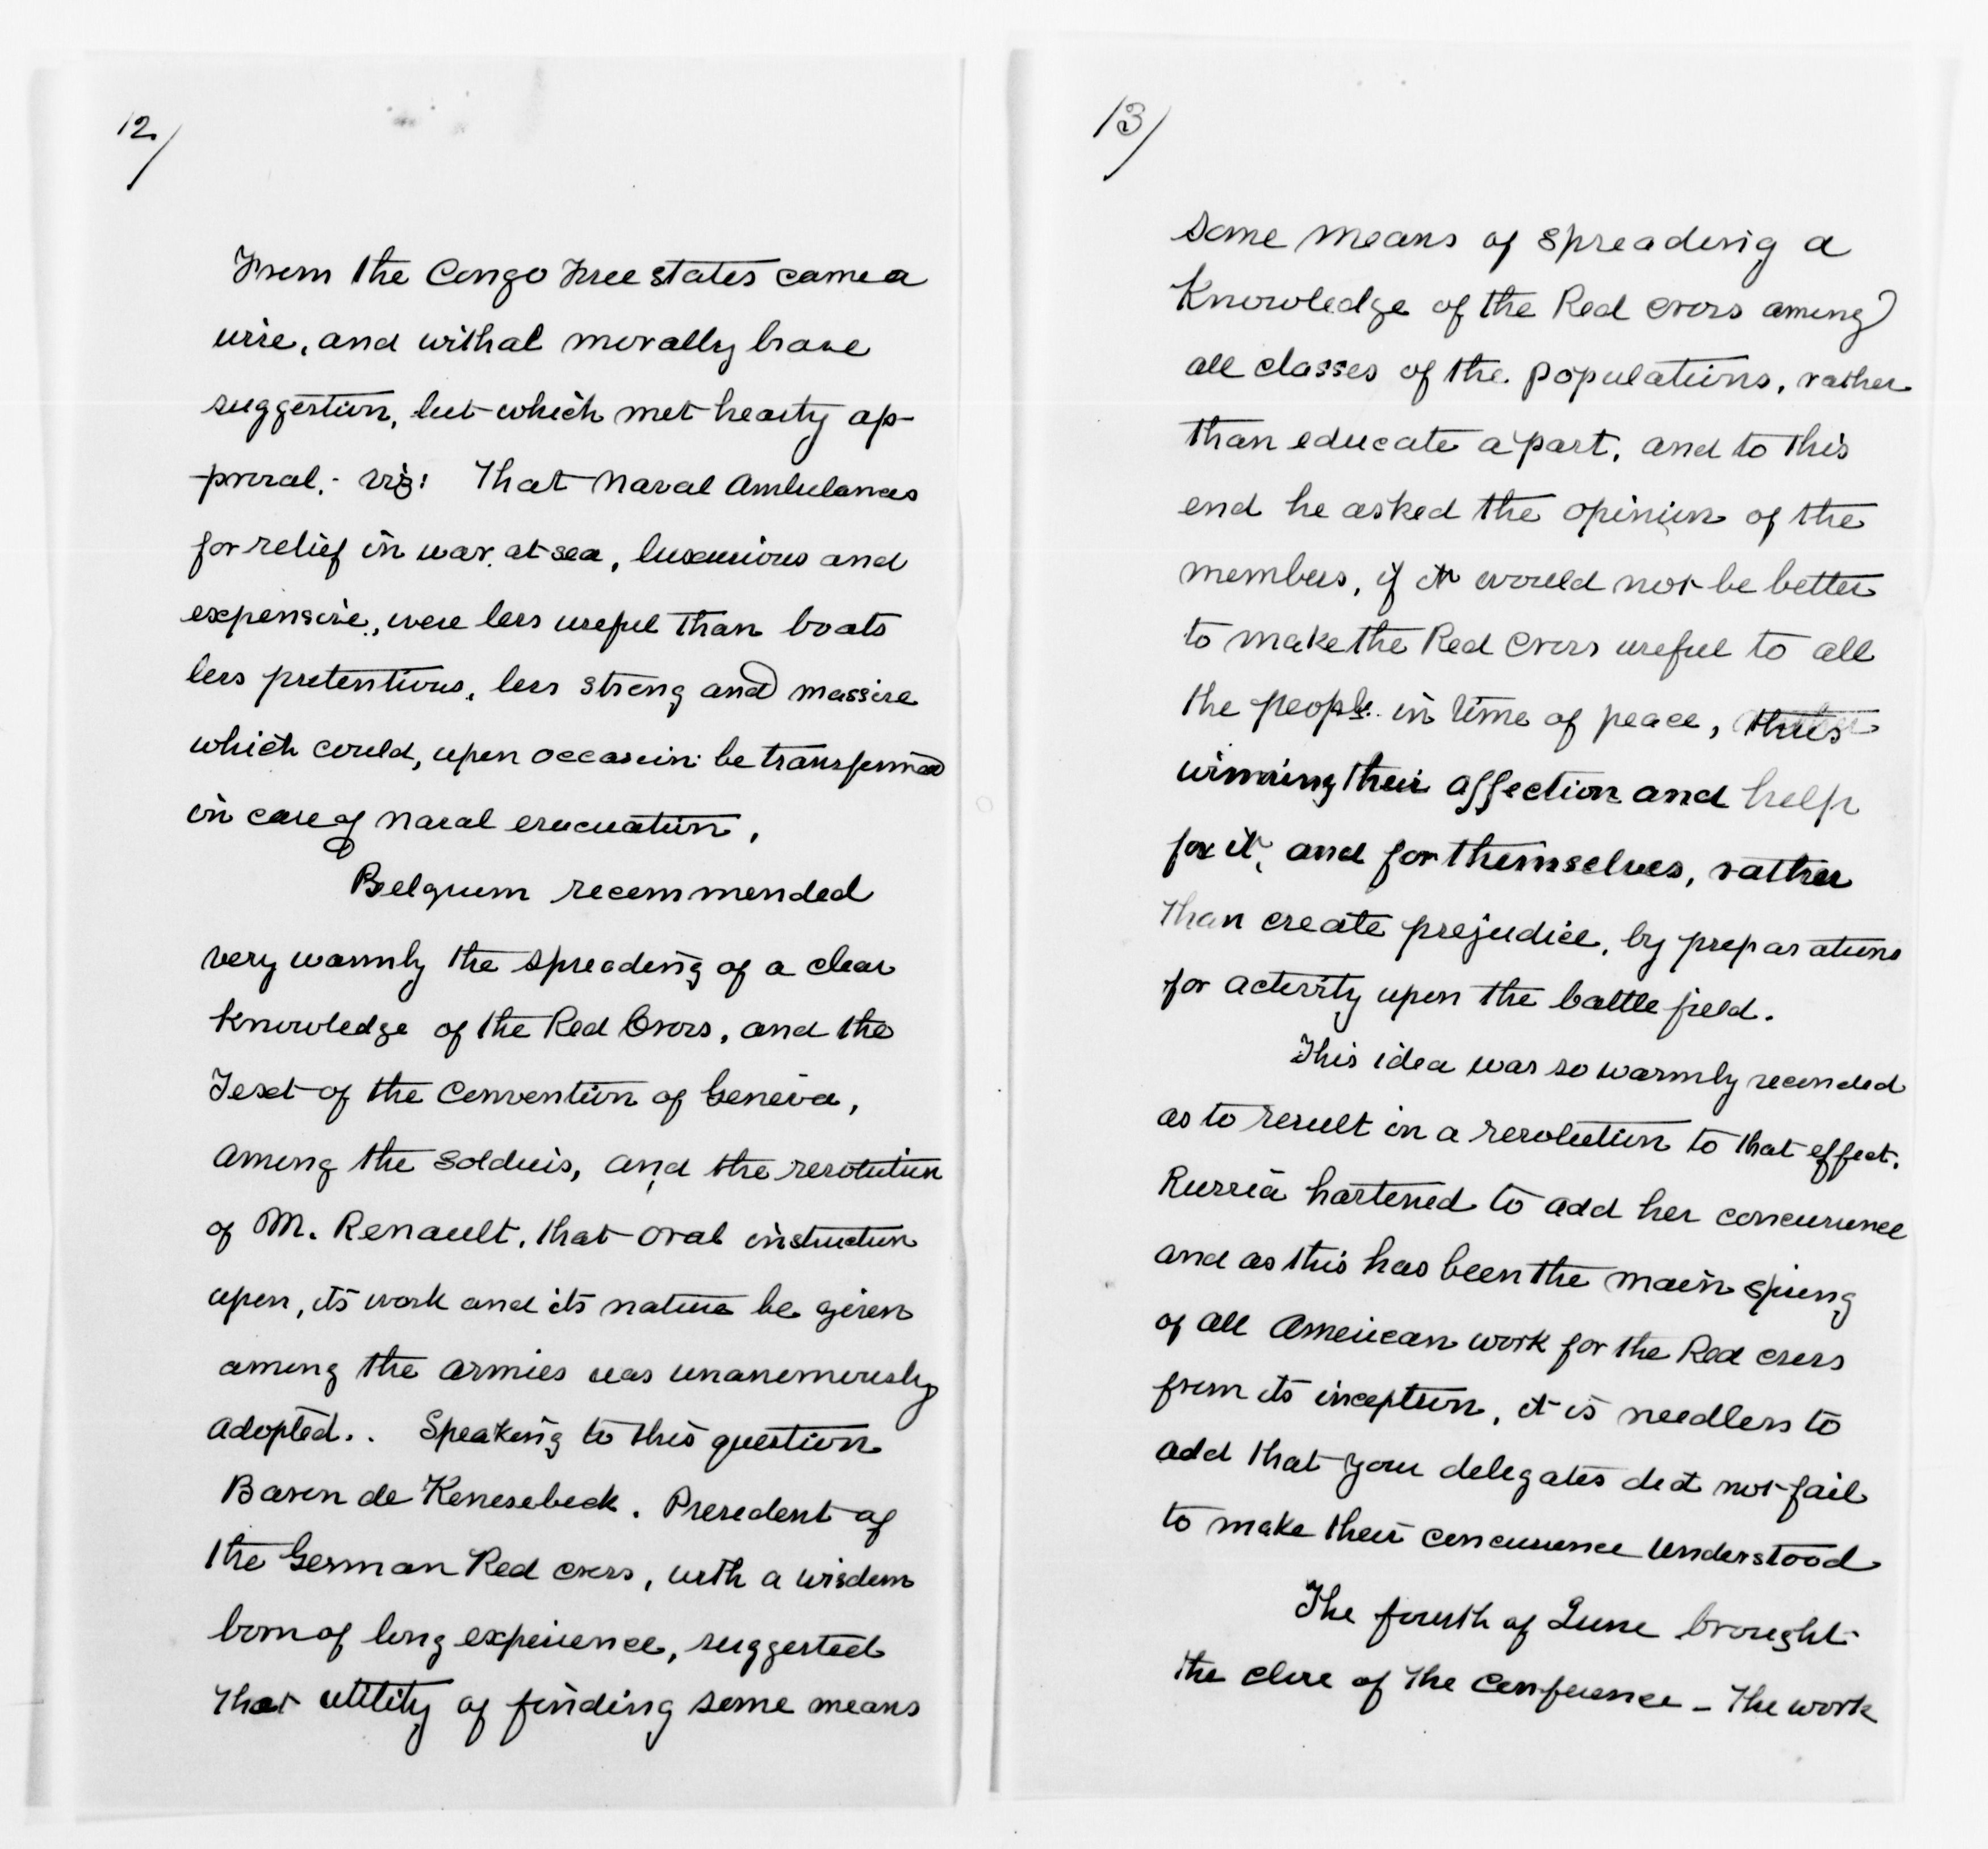 12/
From the Congo Free states came a
wise, and withal morally brave
suggestion, but which met hearty ap-
proval.- viz: That naval Ambulances
for relief in war at sea, luxurious and
expensive, were less useful than boats
less pretentious, less strong and massive
which could, upon occasion be transformed
in case of naval evacuation.
Belgium recommended
very warmly the spreading of a clear
knowledge of the Red Cross, and the
Text of the Convention of Geneva,
among the soldiers, and the resolution
of M. Renault, that oral instruction
upon, its work and its nature be given
among the armies was unanimously
adopted.. Speaking to this question
Baron de Kenesebeck. President of
the German Red cross, with a wisdom
born of long experience, suggested
that utility of finding some means
13/
some means of spreading a
Knowledge of the Red cross among
all classes of the populations, rather
than educate a part, and to this
end he asked the opinion of the
members, if it would not be better
to make the Red Cross useful to all
the people in time of peace, thus
winning their affection and help
for it, and for themselves, rather
than create prejudice, by preparations
for activity upon the battle field.
This idea was so warmly seconded
as to result in a resolution to that effect.
Russia hastened to add her concurrence
and as this has been the main spring
of all American work for the Red cross
from its inception, it is needless to
add that your delegates did not fail
to make their concurrence understood
The fourth of June brought
the close of the Conference - The work